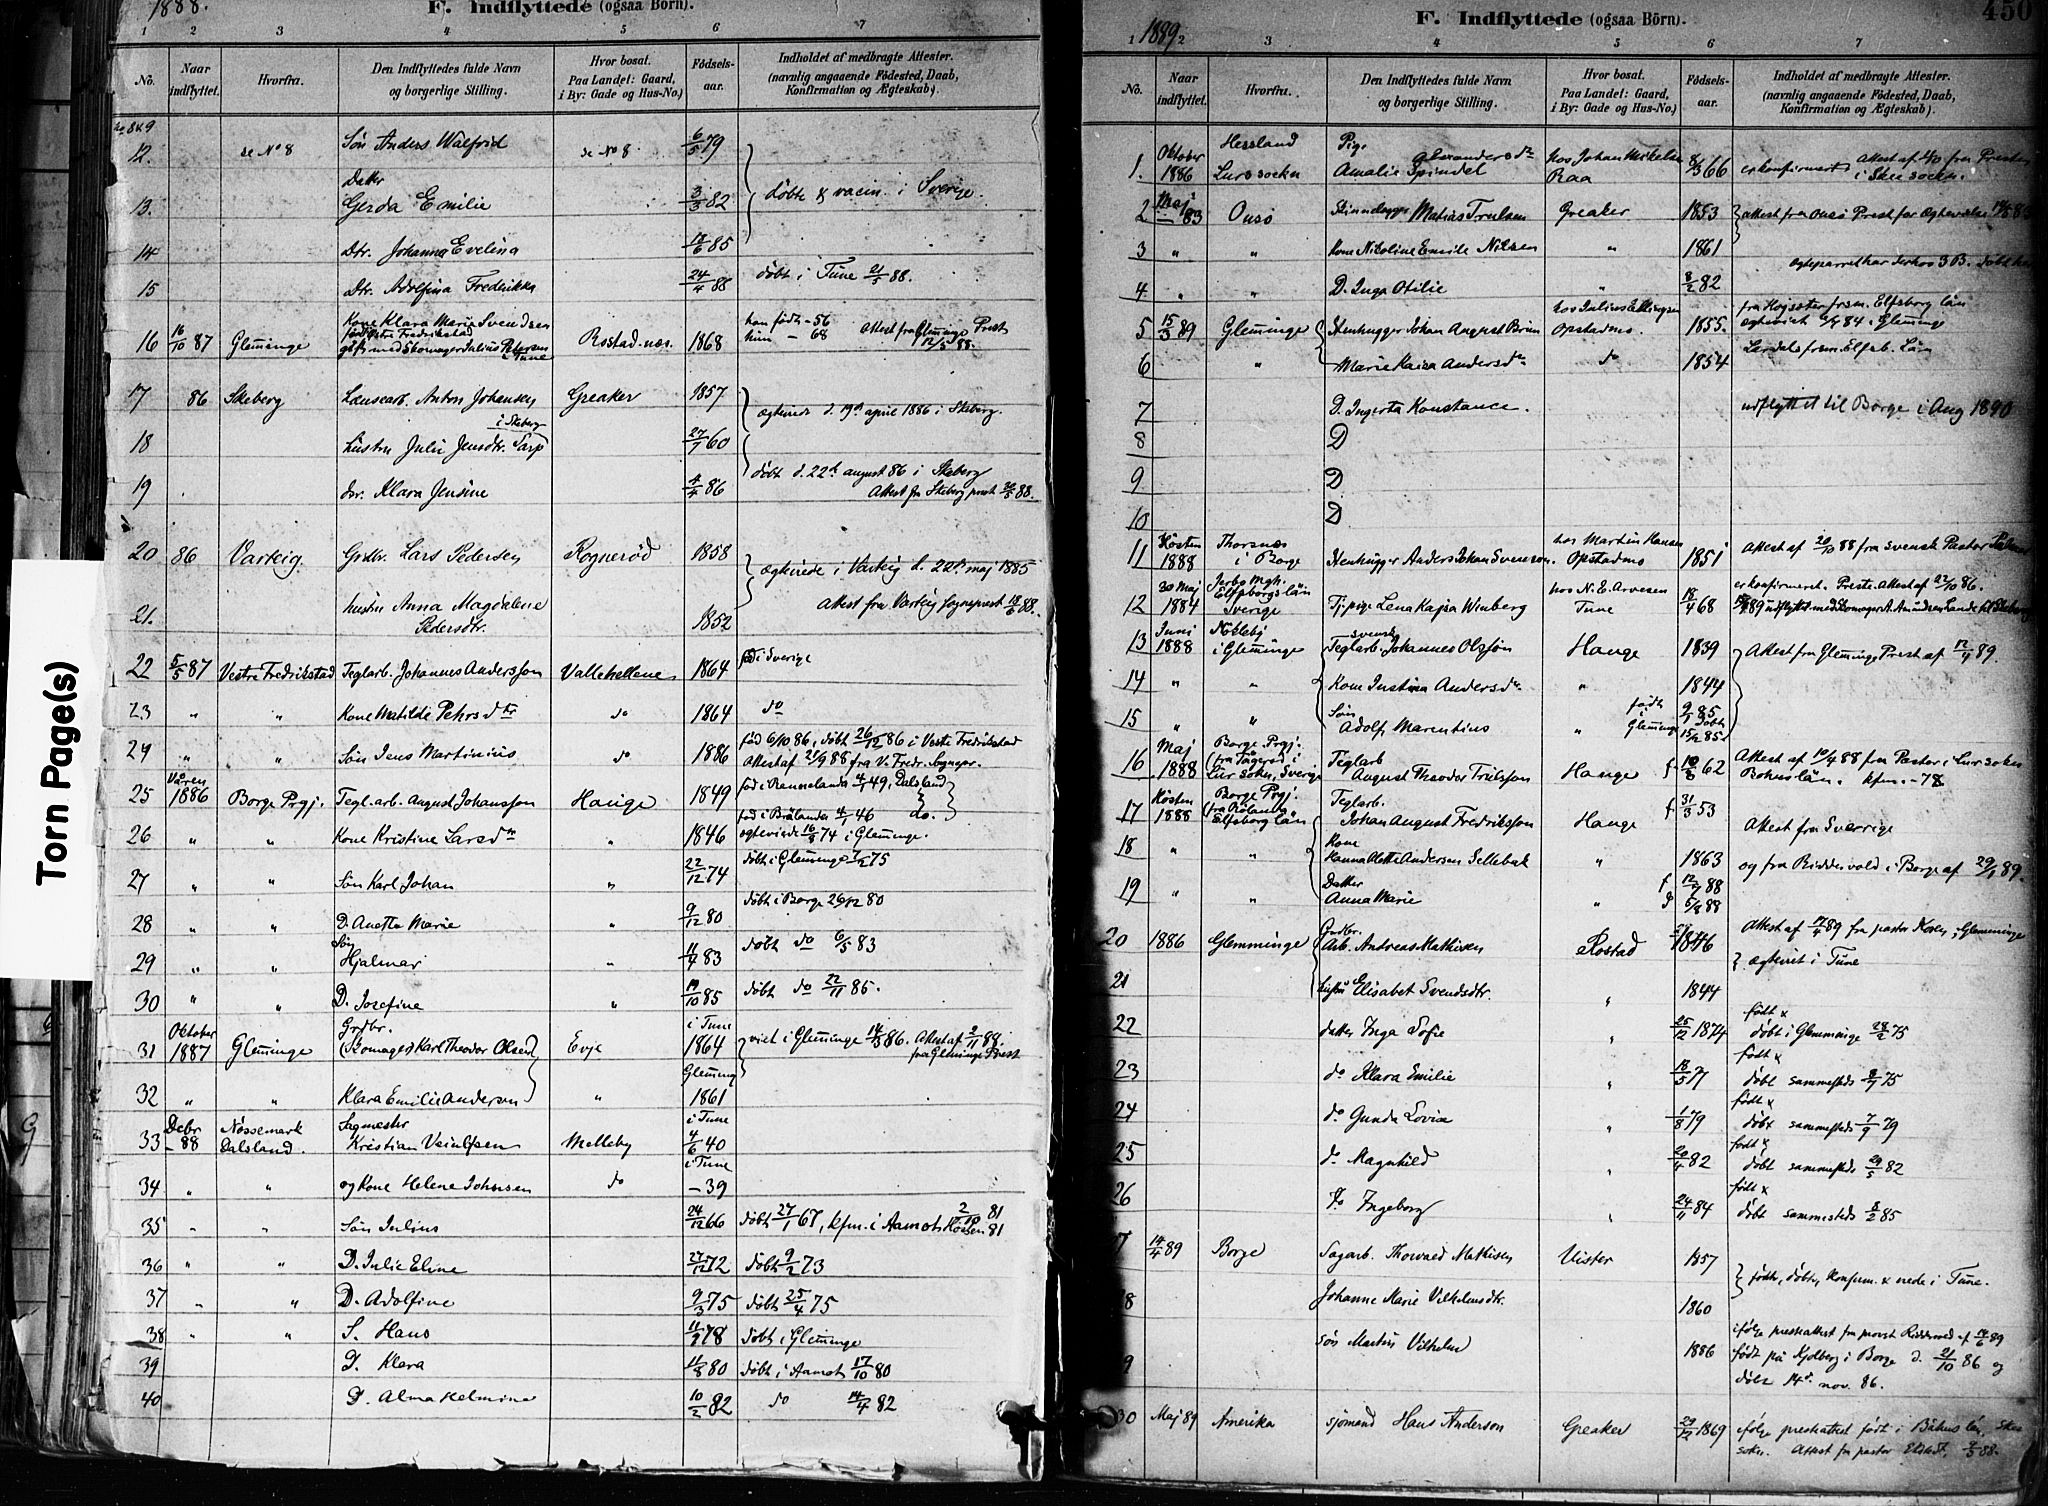 1888.
F. Indflyttede (ogsaa Börn).
1 2 3 4 5 6 7
No.
Naar indflyttet.
Hvorfra.
Den Indflyttedes fulde Navn
og borgerlige Stilling.
Hvor bosat.
Paa Landet: Gaard,
i By: Gade og Hus-No.)
Födsels-
aar.
Indholdet af medbragte Attester.
(navnlig angaaende Födested, Daab,
Konfirmation og Ægteskab).
12. se No 8 Søn Anders Walfrid se No 8 6/5 79
13. Datter
Gerda Emilie 3/3 82 døbte & vacin. i Sverige.
14 Dtr. Johanna Evelina 18/6 85
15 Dtr. Adolfina Fredrikke 24/4 88 døbt i Tune 21/5 88.
16 16/10 87 Glemminge Kone Klara Marie Svendsen
gift med Skomager Julius Petersen
Tune Rostad-næs. 1868 han født - 56
hun - 68 Attest fra Glemminge Prest 12/5 88.
17 86 Skeberg Anton Johansen Greaker 1857 ægteviede d. 19de april 1886 i Skeberg.
18 hustru Julie Jensdtr. Sarp i Skeberg 27/7 60
19 dtr. Klara Jensine 4/4 86 døbt d. 22de august 86 i Skeberg
Attest fra Skeberg prest 88.
20 86 Varteig. Grdbr. Lars Pedersen Rognerød 1858 ægteviede i Varteig d. 22de maj 1885
21. hustru Anna Magdalene
Pedersdtr. 1852 Attest fra Varteig sogneprest 18/6 88.
22 5/5 87 Vestre Fredrikstad Teglarb. Johannes Andersson Vallehellene 1864 fød i Sverige
23 " " Kone Matilde Pehrsdtr do 1864 do
24 " " Søn Jens Martinius do 1886 fød 6/10 86, døbt 26/12 86 i Vestre Fredrikstad
Attest af 21/9 88 fra V. Fredr. Sognepr.
25 Våren 1886 Borge Prgj. Tegl.arb. August Johansson Hauge 1849 fød i Rannelanda 4/1 49, Dalsland
26 " " Kone Kristine Larsdtr " 1846 fød i Brålanda 4/1 46 do.
ægteviede 16/8 74 i Glemminge.
27 " " Søn Karl Johan " 22/12 74 døbt i Glemminge 7/2 75
28 " " D. Anetta Marie " 9/12 80 døbt i Borge 26/12 80
29 " " Søn
Hjalmar " 11/4 83 døbt do 6/5 83
30 " " D. Josefine " 19/10 85 døbt do 22/11 85.
31 Oktober 1887 Glemminge Grdbr.
(Skomager) Karl Theodor Olsen Evje i Tune
1864 viet i Glemminge 14/3 86. Attest af 2/11 88.
fra Glemminge Prest
32 " " Klara Emilie Andersen " Glemminge
1861
33 Debr - 88 Nössemark
Dalsland. Sagmester
Kristian Melleby i Tune
4/6 40
34 " " og Kone Helene Johnsen do i Tune
- 39
35 " " Søn Julius 24/12 66 døbt 27/1 67, kfm. i Aamot Høsten 81
36 " " D. Julie Eline 27/12 72 døbt 9/2 73
37 " " D. Adolfine 9/3 75 døbt 25/4 75
38 " " S. Hans 78 døbt i Glemminge
39 D. Klara 11/8 80 døbt i Aamot 17/10 80
40 D. Alma Helmine 10/2 82 do 14/4 82
450
1889
F. Indflyttede (ogsaa Börn).
1 2 3 4 5 6 7
No.
Naar indflyttet.
Hvorfra.
Den Indflyttedes fulde Navn
og borgerlige Stilling.
Hvor bosat.
Paa Landet: Gaard,
i By: Gade og Hus-No.)
Födsels-
aar.
Indholdet af medbragte Attester.
(navnlig angaaende Födested, Daab,
Konfirmation og Ægteskab).
1. Oktober 1886 Hessland
Lurs sockn Pige
Amalie Alexandersdtr Spindel hos Johan Mikelsen
Raa 8/3 66 er konfirmert Attest af fra Presten
i Skee sockn.
2 Maj 83 Onsø Matias Trulsen Greaker 1853 attest fra Onsø Prest for Ægtevielse
3 " " Kone Nikoline Emilie Nilsen " 1861
ægteparret har derhos 3 B. døbt her
4 " " D. Inga Otilie 8/2 82
5 15/3 89 Glemminge Stenhugger Johan August Brun hos Julius Ellingsen
Opstadmo. 1855. fra Elfsborg län
ægteviet 84 i Glemminge
6 " Marie Kaisa Andersdtr do 1854 Elfsb. Län
7 D. Ingerta Konstance. udflyttet til Borge i Aug 1890
8 D
9 D
10 D
11 Høsten 1888 Thorsnæs
i Borge Stenhugger Anders Johan Svenson. hos Martin Hansen
Opstadmo 1851 Attest af 20/10 88 fra svensk Pastor
12 30 Maj 1884 Elfsborgslän
Sverige Tj. pige Lena Kajsa Winberg hos N. E. Arvesen
Tune 18/4 68 er konfirmert. Preste-Attest af 22/10 86.
89 udflyttet med Skomager A. Amundsen Lande til Skeberg
13 Juni 1888 Nökleby
i Glemminge svensk
Teglarb. Johannes Olsson Hauge 1839 Attest fra Glemminge Prest af 12/4 89.
14 " " Kone Justina Andersdtr " 1844
15 " " Søn
Adolf Marentius " født
i
Glemminge 9/1 85
døbt
15/2 85
16 Maj 1888 Borge Prgj.
(fra Tågeröd i
Lur sokn, Sverige Teglarb
August Theodor Trulsson Hauge f. 10/3 62 Attest af 10/4 88 fra Pastor i Lur sokn
Bohuslän. kfm. - 78
17 Høsten 1888 Borge Prgj.
Elfsborg län Teglarb.
Johan August Fredriksson Hauge f 31/3 53 Attest fra Sverrige
18 " " Kone
Hanna Olette Andersen Sellebak " 1863 og fra Riddervold i Borge af 29/1 89.
19 " " Datter
Anna Marie " f 12/7 88
6/8 88
20 1886 Glemminge Grdbr.
Arb. Andreas Mathisen Rostad 1846 Attest af 17/4 89 fra pastor Koren, Glemminge
ægteviet i Tune
21 hustru Elisabet Svendsdtr. " 1844
22 datter Inga Sofie " 25/12 1874 født &
døbt i Glemminge 28/2 75
23 do Klara Emilie " 18/5 77 født &
døbt sammesteds 8/7 75
24 do Gunda Lovise " 1/8 79 født &
døbt sammesteds 7/9 79
25 do Magnhild " 20/4 82 født &
døbt sammesteds 29/5 82
26 do Ingeborg " 24/11 84 født &
døbt sammesteds 8/2 85
7 14/4 89 Borge Sagarb. Thorvald Mathisen Vister 1857 født, døbt, konfirm. & viede i Tune.
8 Johanne Marie Vilhelmsdtr. 1860
9 søn Martin Vilhelm 1886 ifølge prestattest fra provst Riddervold af 14/6 89
født på Kjølberg i Borge d. 21/10 86 og
døbt 14de nov. 86.
30 Maj 89 Amerika sjømand Hans Anderson Greaker 29/12 1869 ifølge prestattest født i Båhus län, Skee
sokn. Attest fra pastor 88.
Torn Page(s)